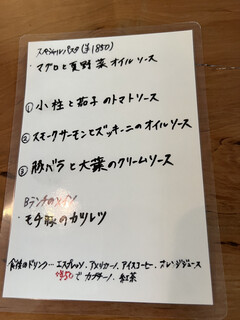 スペシャルパスタ (¥1850)
・マグロと夏野菜オイルソース
① 小柱と茄子のトマトソース
② スモークサーモンとズッキーニのオイルソース
③ 豚バラと大葉のクリームソース
Bランチのメイン
・モチ豚のカツレツ
食後のドリンク…エスプレッソ、アメリカーノ、アイスコーヒー、オレンジジュース
+¥50で カプチーノ、紅茶